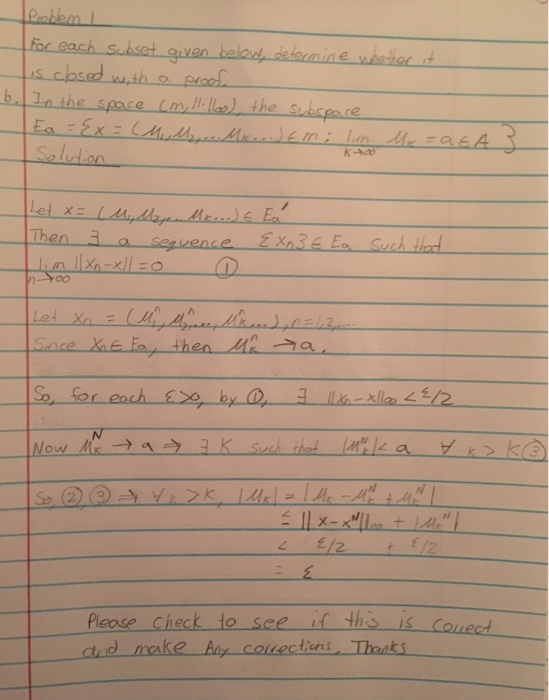 Problem 1
For each subset given below, determine whether it
is closed with a proof.
b. In the space (m, ||·||∞), the subspace
Ea = {x = (M₁, M₂, ... Mκ...) ∈ m : lim k→∞ Mκ = a ∈ A }
Solution
Let x = (M₁, M₂, ... Mκ...) ∈ Ea'
Then ∃ a sequence {xn} ∈ Ea such that
lim n→∞ ||xn-x|| = 0 ①
Let xn = (M₁ⁿ, M₂ⁿ, ..., Mκⁿ...), n=1,2,...
Since xn ∈ Ea, then Mκⁿ → a.
So, for each ε>0, by ①, ∃ ||xn-x||∞ < ε/2
Now Mκᴺ → a ⇒ ∃ K such that |Mκᴺ| < a ∀ k > K ③
So, ②, ③ ⇒ ∀ k > K, |Mκ| = |Mκ - Mκᴺ + Mκᴺ|
≤ ||x-xᴺ||∞ + |Mκᴺ|
< ε/2 + ε/2
= ε
Please check to see if this is correct
and make Any corrections, Thanks